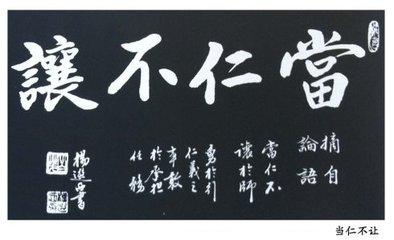 當仁不讓
摘自
論語
當仁不
讓於師
勇於行
仁義之
事敢
於承担
任務
楊 書
当仁不让